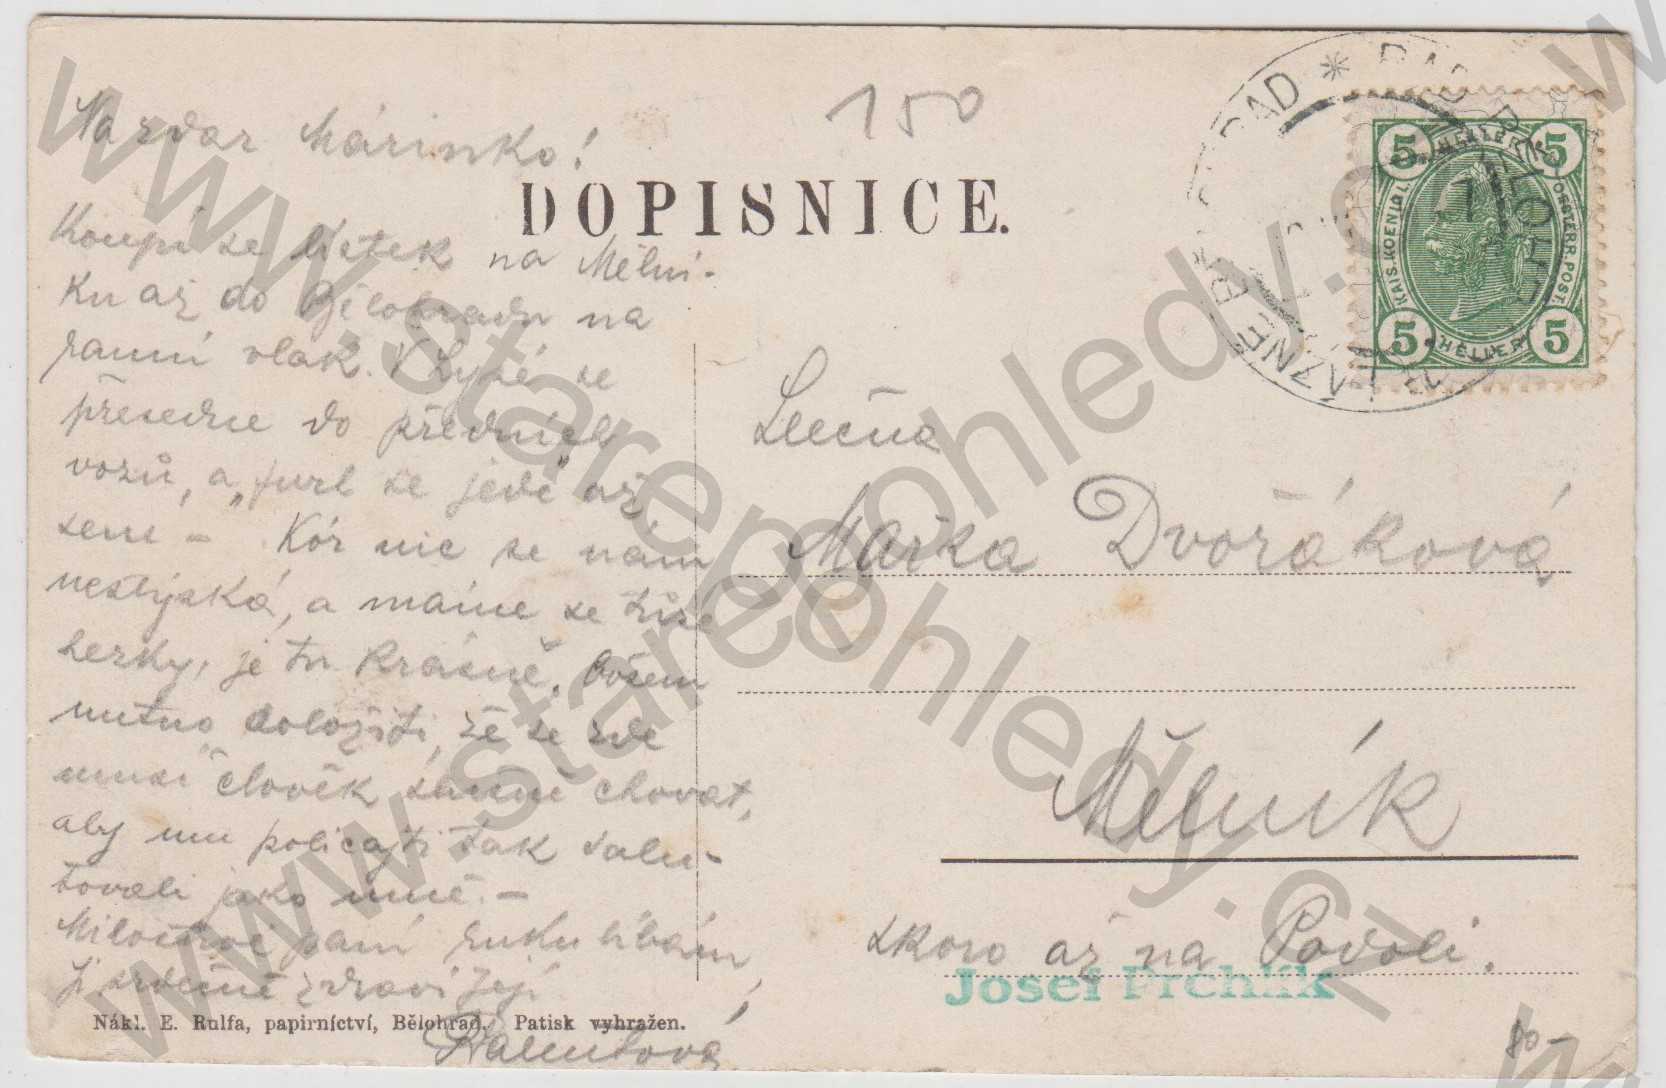 Nazdar Márinko!
150
DOPISNICE.
Koupí se lístek na Mělní-
ku až do Bělohradu na
ranní vlak. V Lysé se
přesedne do předních
vozů, a „furt se jede až
sem" - Kór nic se nám
nestýská, a máme se
herky, je tu krásně. Ovšem
nutno doložiti, že se zde
musí člověk slušně chovat,
aby mu policajti tak salu-
tovali jako mně. -
Milostivé paní ruku líbám,
Ji srdečně zdraví Její
Nákl. E. Rulfa, papírníctví, Bělohrad. Patisk vyhražen.
LÁZNĚ BĚLOHRAD * BAD BĚLOHRAD
5 HELLER 5
KAIS. KOENIGL. OESTERR. POST.
5 HELLER 5
Slečna
Mařka Dvořáková
Mělník
skoro až na Podolí.
Josef Prchlík
80-
www.starepohledy.cz
www.starepohledy.cz